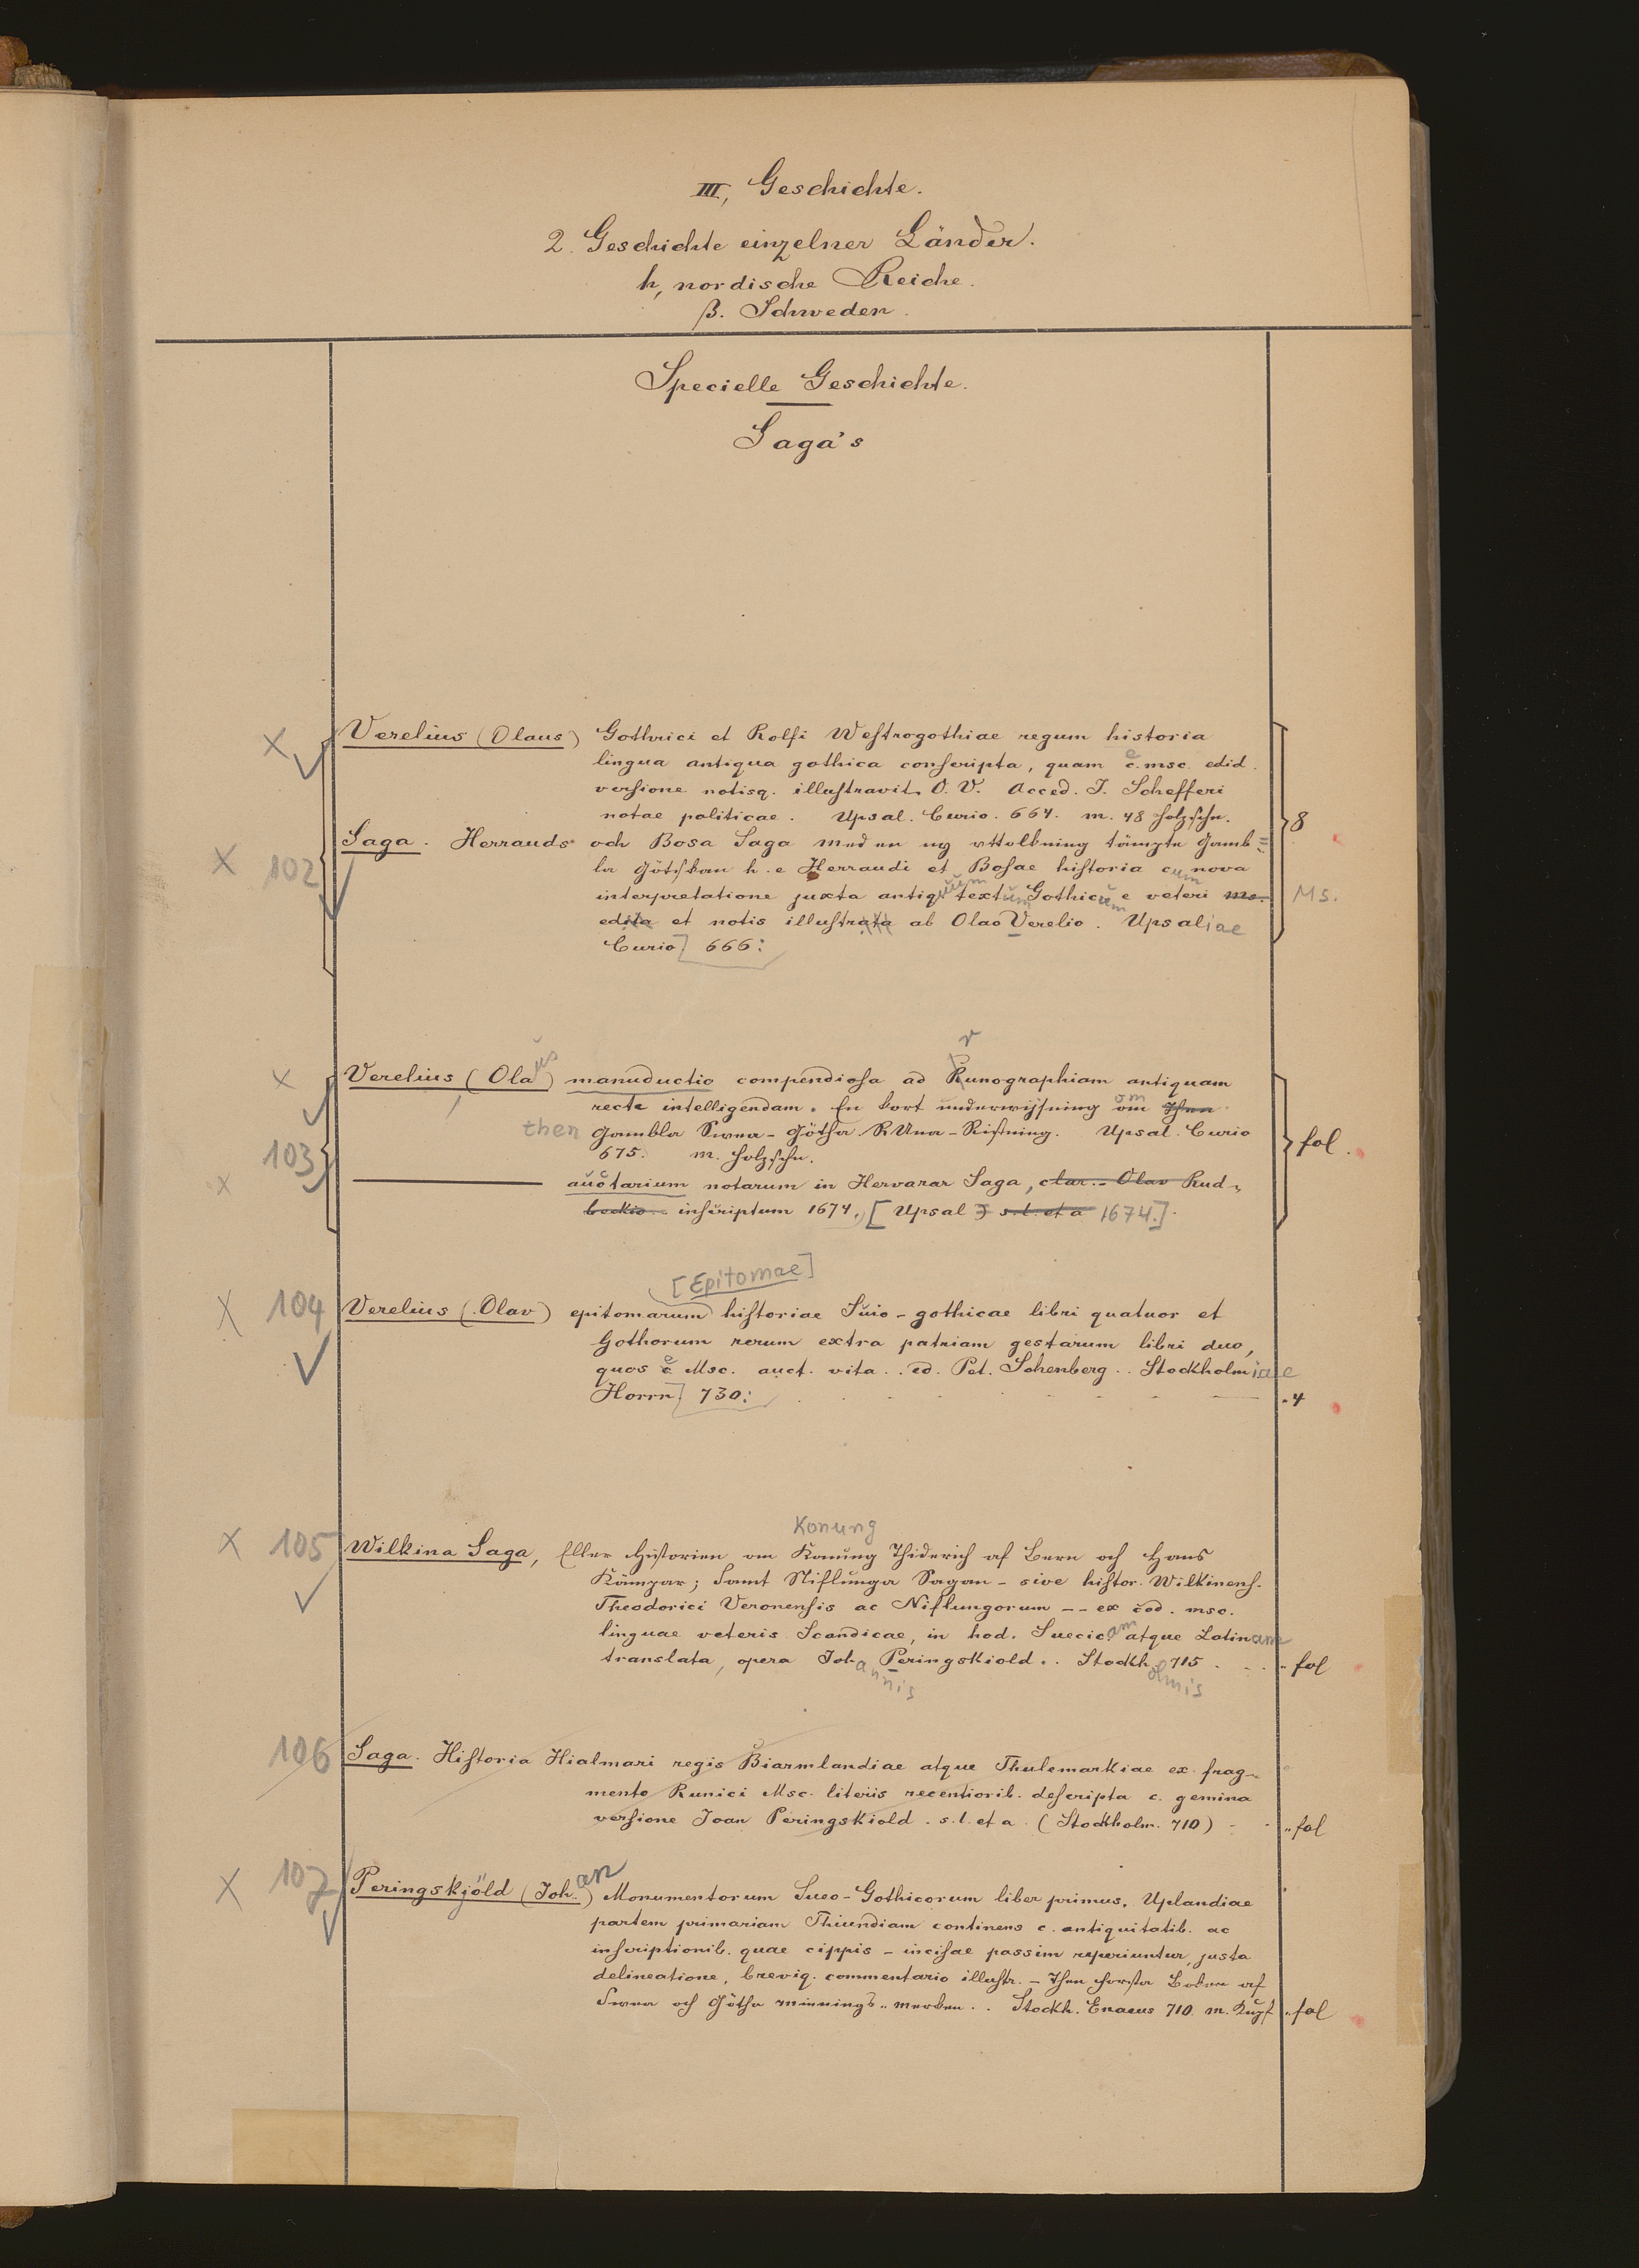 III, Geschichte.
2. Geschichte einzelner Länder.
h, nordische Reiche.
β. Schweden.
Specielle Geschichte.
Saga's
X Verelius (Olaus) Gothrici et Rolfi Westrogothiae regum historia
lingua antiqua gothica conscripta, quam e c. msc. edid.
versione notisq. illustravit O. V. Acced. J. Schefferi
notae politicae. Upsal. Curio. 664. m. 48 Holzschn. 8
X 102 Saga. Herrauds och Bosa Saga med en ny uttolkning tämpte Gamb=
la Götskan h. e Herraudi et Bosae historia cum nova
interpretatione juxta antiquum textum Gothicum e veteri ms. Ms.
edita et notis illustrata ab Olao Verelio. Upsaliae
Curio] 666:
X Verelius (Olaus) manuductio compendiosa ad r Runographiam antiquam
recte intelligendam. En kort underwijsning om om then
then Gambla Swea-Götha RUna-Ristning. Upsal. Curio
103 675. m. Holzschn. fol.
X ——— auctarium notarum in Hervarar Saga, clar. Olav Rud-
beckio inscriptum 1674. [Upsal] s. l. et a 1674.]
[Epitomae]
X 104 Verelius (Olav) epitomarum historiae Suio-gothicae libri quatuor et
Gothorum rerum extra patriam gestarum libri duo,
quos e c Msc. auct. vita.. ed. Pet. Schenberg.. Stockholmiae
Horrn] 730: 4
Konung
X 105 Wilkina Saga, Eller Historien om Konung Thiderich af Bern och Hans
Kämpar; Samt Niflunga Sagan - sive histor. Wilkinens.
Theodorici Veronensis ac Niflungorum -- ex cod. msc.
linguae veteris Scandicae, in hod. Suecicam atque Latinam
translata, opera Johannis Peringskiold.. Stockholmis 715. fol
106 Saga. Historia Hialmari regis Biarmlandiae atque Thulemarkiae ex frag-
mento Runici Msc. literis recentiorib. descripta c. gemina
versione Joan Peringskiold. s. l. et a. (Stockholm. 710) fol
X 107 Peringskjöld (Johan) Monumentorum Sueo-Gothicorum liber primus, Uplandiae
partem primariam Thiundiam continens c. antiquitatib. ac
inscriptionib. quae cippis - incisae passim reperiuntur, justa
delineatione, breviq. commentario illustr. - Then första Boken af
Swea och Götha minnings-merken.. Stockh. Enaeus 710. m. Kupf fol